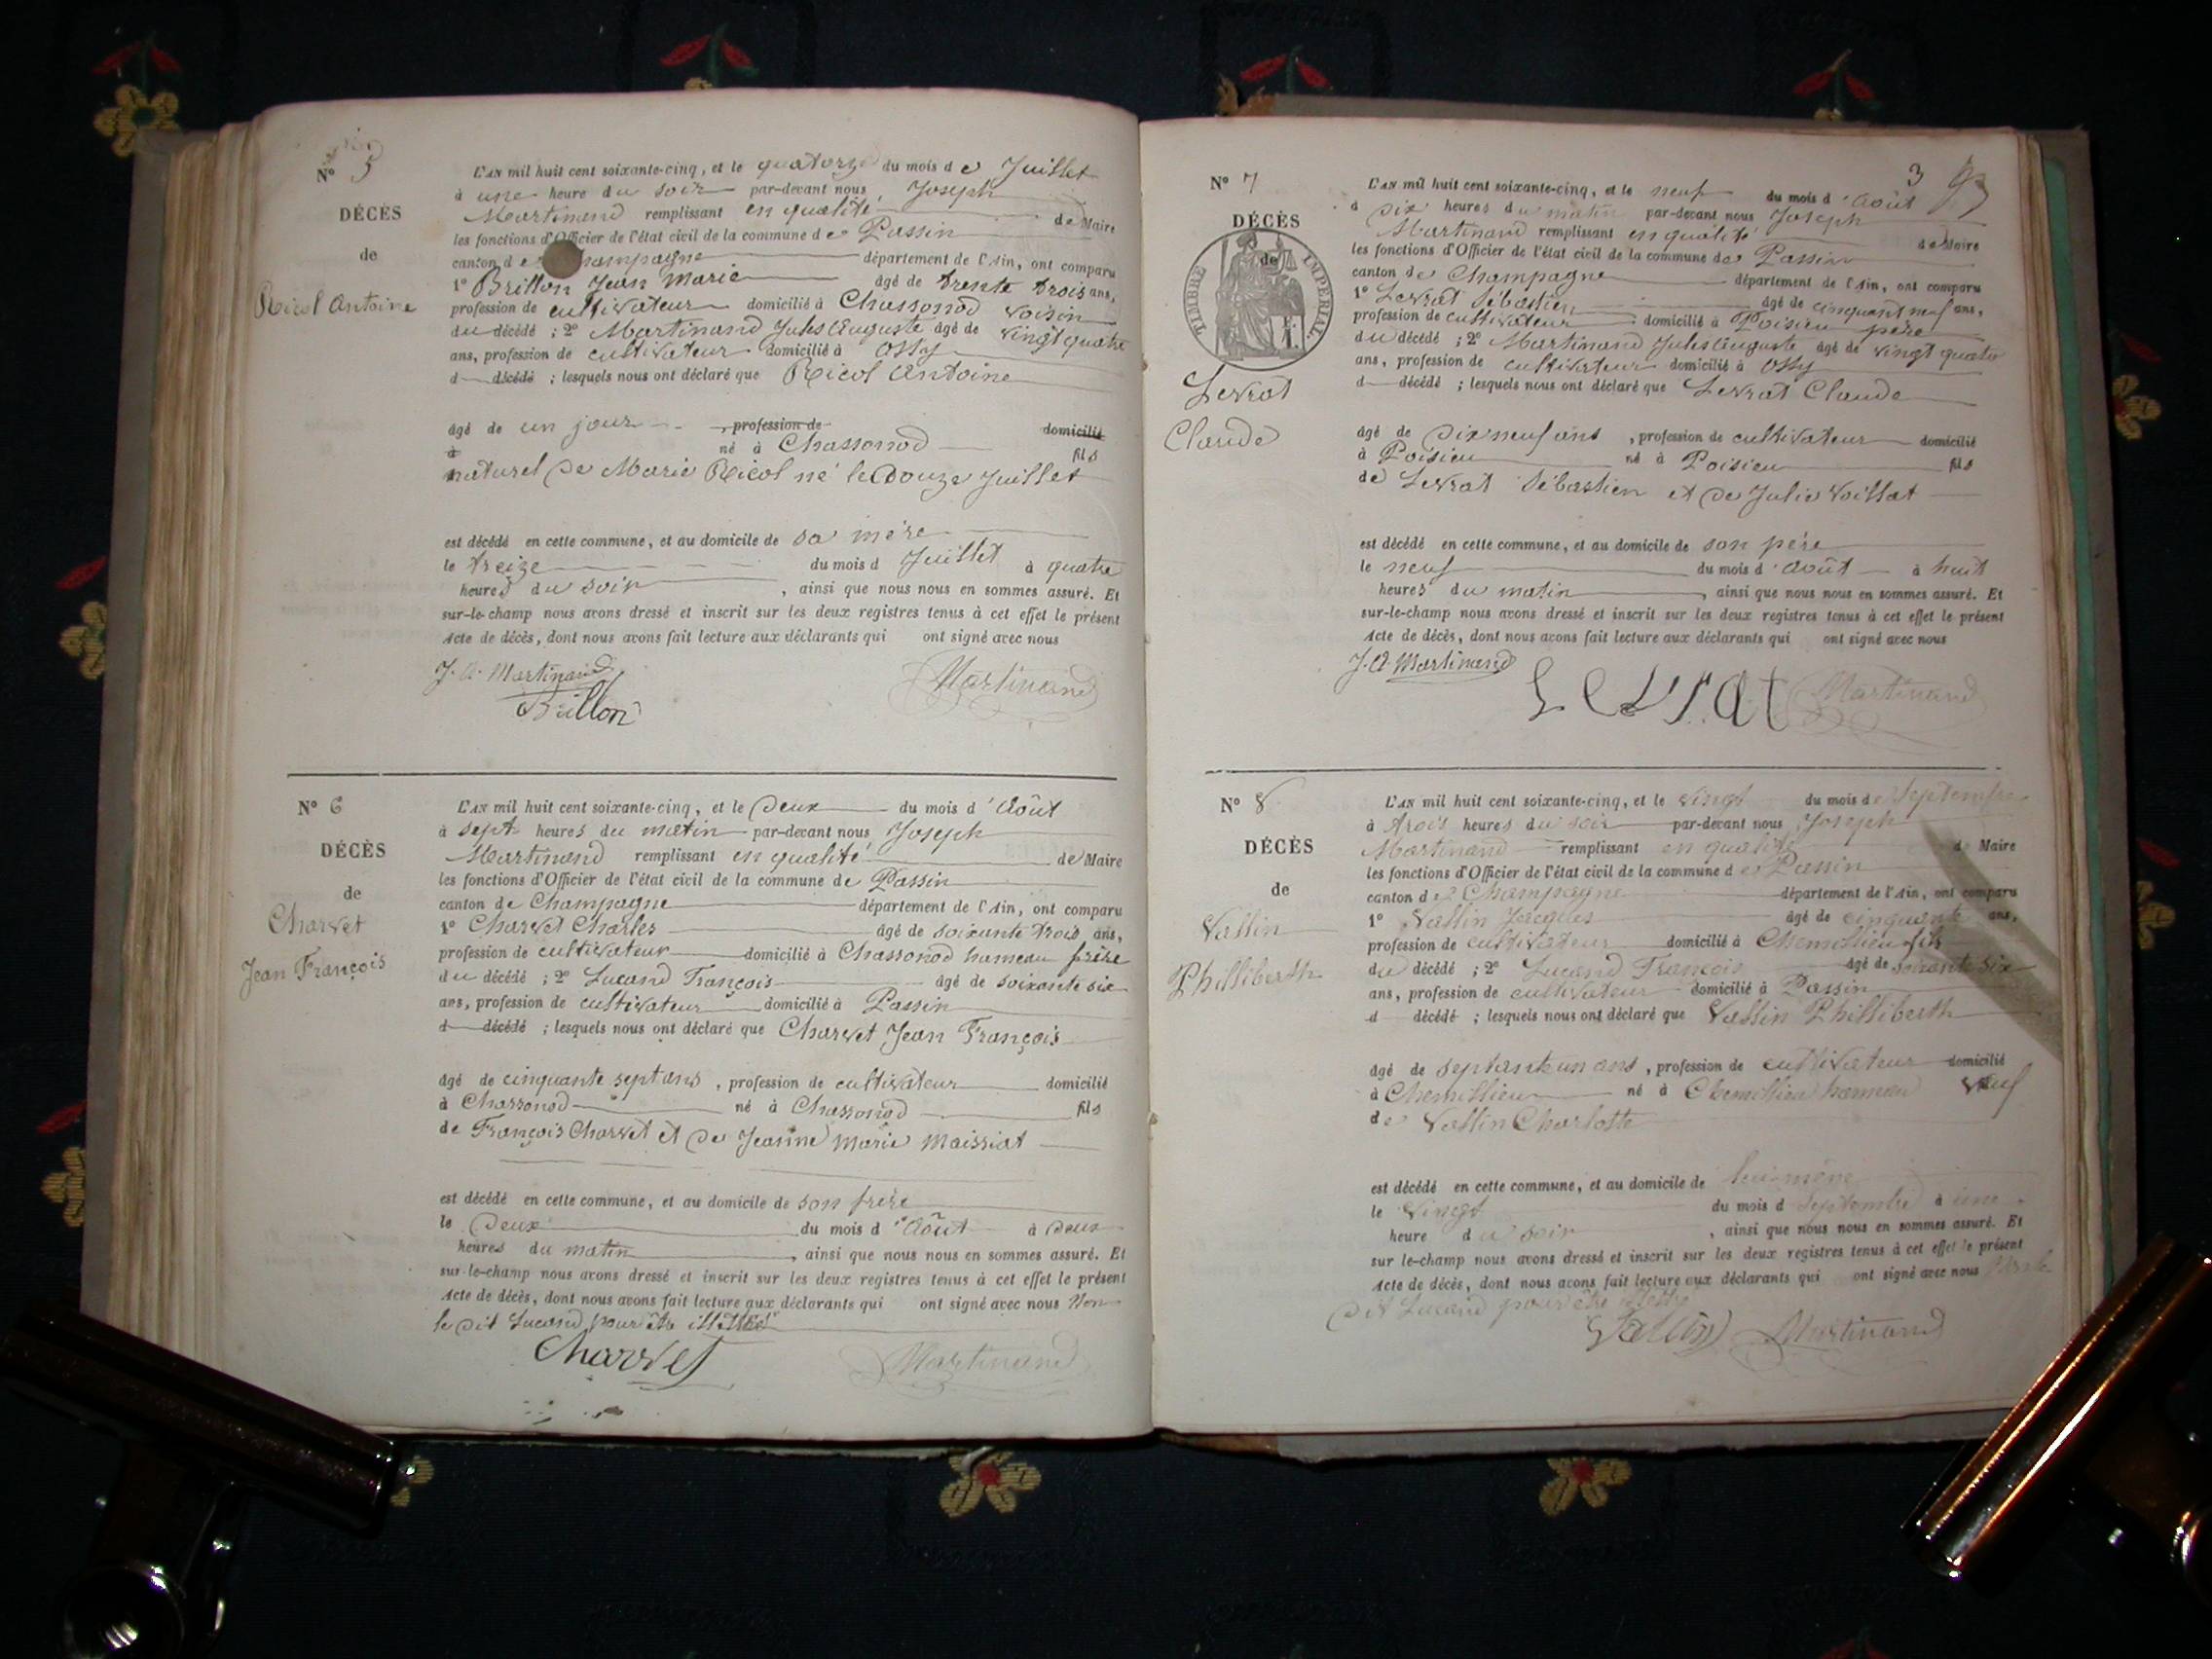 Nº 5
DÉCÈS
de
Ricol Antoine
L'AN mil huit cent soixante-cinq, et le quatorze du mois de Juillet
à une heure du soir par-devant nous, Joseph
Martinand remplissant en qualité de Maire
les fonctions d'Officier de l'état civil de la commune de Passin
canton de Champagne département de l'Ain, ont comparu
1º Brillon Jean Marie âgé de trente trois ans,
profession de cultivateur domicilié à Chassonod voisin
du décédé ; 2º Martinand Jules Auguste âgé de vingt quatre
ans, profession de cultivateur domicilié à Ossy
d décédé ; lesquels nous ont déclaré que Ricol Antoine
âgé de un jour , profession de domicilié
à né à Chassonod fils
naturel de Marie Ricol né le douze Juillet
est décédé en cette commune, et au domicile de sa mère
le treize du mois d Juillet à quatre
heures du soir , ainsi que nous nous en sommes assuré. Et
sur-le-champ nous avons dressé et inscrit sur les deux registres tenus à cet effet le présent
Acte de décès, dont nous avons fait lecture aux déclarants qui ont signé avec nous
J. A. Martinand Martinand
Brillon
Nº 6
DÉCÈS
de
Charvet
Jean François
L'AN mil huit cent soixante-cinq, et le deux du mois d'Août
à sept heures du matin par-devant nous, Joseph
Martinand remplissant en qualité de Maire
les fonctions d'Officier de l'état civil de la commune de Passin
canton de Champagne département de l'Ain, ont comparu
1º Charvet Charles âgé de soixante trois ans,
profession de cultivateur domicilié à Chassonod hameau frère
du décédé ; 2º Lucand François âgé de soixante six
ans, profession de cultivateur domicilié à Passin
d décédé ; lesquels nous ont déclaré que Charvet Jean François
âgé de cinquante sept ans , profession de cultivateur domicilié
à Chassonod né à Chassonod fils
de François Charvet et de Jeanne Marie Maissiat
est décédé en cette commune, et au domicile de son frère
le deux du mois d'Août à deux
heures du matin , ainsi que nous nous en sommes assuré. Et
sur-le-champ nous avons dressé et inscrit sur les deux registres tenus à cet effet le présent
Acte de décès, dont nous avons fait lecture aux déclarants qui ont signé avec nous Non
le dit Lucand pour être
Charvet Martinand
3
Nº 7
DÉCÈS
de
TIMBRE IMPÉRIAL
Levrat
Claude
L'AN mil huit cent soixante-cinq, et le neuf du mois d'Août
à dix heures du matin par-devant nous Joseph
Martinand remplissant en qualité de Maire
les fonctions d'Officier de l'état civil de la commune de Passin
canton de Champagne département de l'Ain, ont comparu
1º Levrat Sébastien âgé de cinquant neuf ans,
profession de cultivateur domicilié à Poisieu père
du décédé ; 2º Martinand Jules Auguste âgé de vingt quatre
ans, profession de cultivateur domicilié à Ossy
d décédé ; lesquels nous ont déclaré que Levrat Claude
âgé de dix neuf ans , profession de cultivateur domicilié
à Poisieu né à Poisieu fils
de Levrat Sébastien et de Julie Voillat
est décédé en cette commune, et au domicile de son père
le neuf du mois d'Août à huit
heures du matin , ainsi que nous nous en sommes assuré. Et
sur-le-champ nous avons dressé et inscrit sur les deux registres tenus à cet effet le présent
Acte de décès, dont nous avons fait lecture aux déclarants qui ont signé avec nous
J. A. Martinand Levrat Martinand
Nº 8
DÉCÈS
de
Vallin
Philliberth
L'AN mil huit cent soixante-cinq, et le vingt du mois de Septembre
à trois heures du soir par-devant nous Joseph
Martinand remplissant en qualité de Maire
les fonctions d'Officier de l'état civil de la commune de Passin
canton de Champagne département de l'Ain, ont comparu
1º Vallin Jacques âgé de cinquante ans,
profession de cultivateur domicilié à Chemillieu fils
du décédé ; 2º Lucand François âgé de soixante six
ans, profession de cultivateur domicilié à Passin
d décédé ; lesquels nous ont déclaré que Vallin Philliberth
âgé de septante un ans , profession de cultivateur domicilié
à Chemillieu né à Chemillieu hameau Veuf
de Vallin Charlotte
est décédé en cette commune, et au domicile de lui même
le vingt du mois d Septembre à une
heure du soir , ainsi que nous nous en sommes assuré. Et
sur le-champ nous avons dressé et inscrit sur les deux registres tenus à cet effet le présent
Acte de décès, dont nous avons fait lecture aux déclarants qui ont signé avec nous
dit Lucand pour être
Vallin Martinand